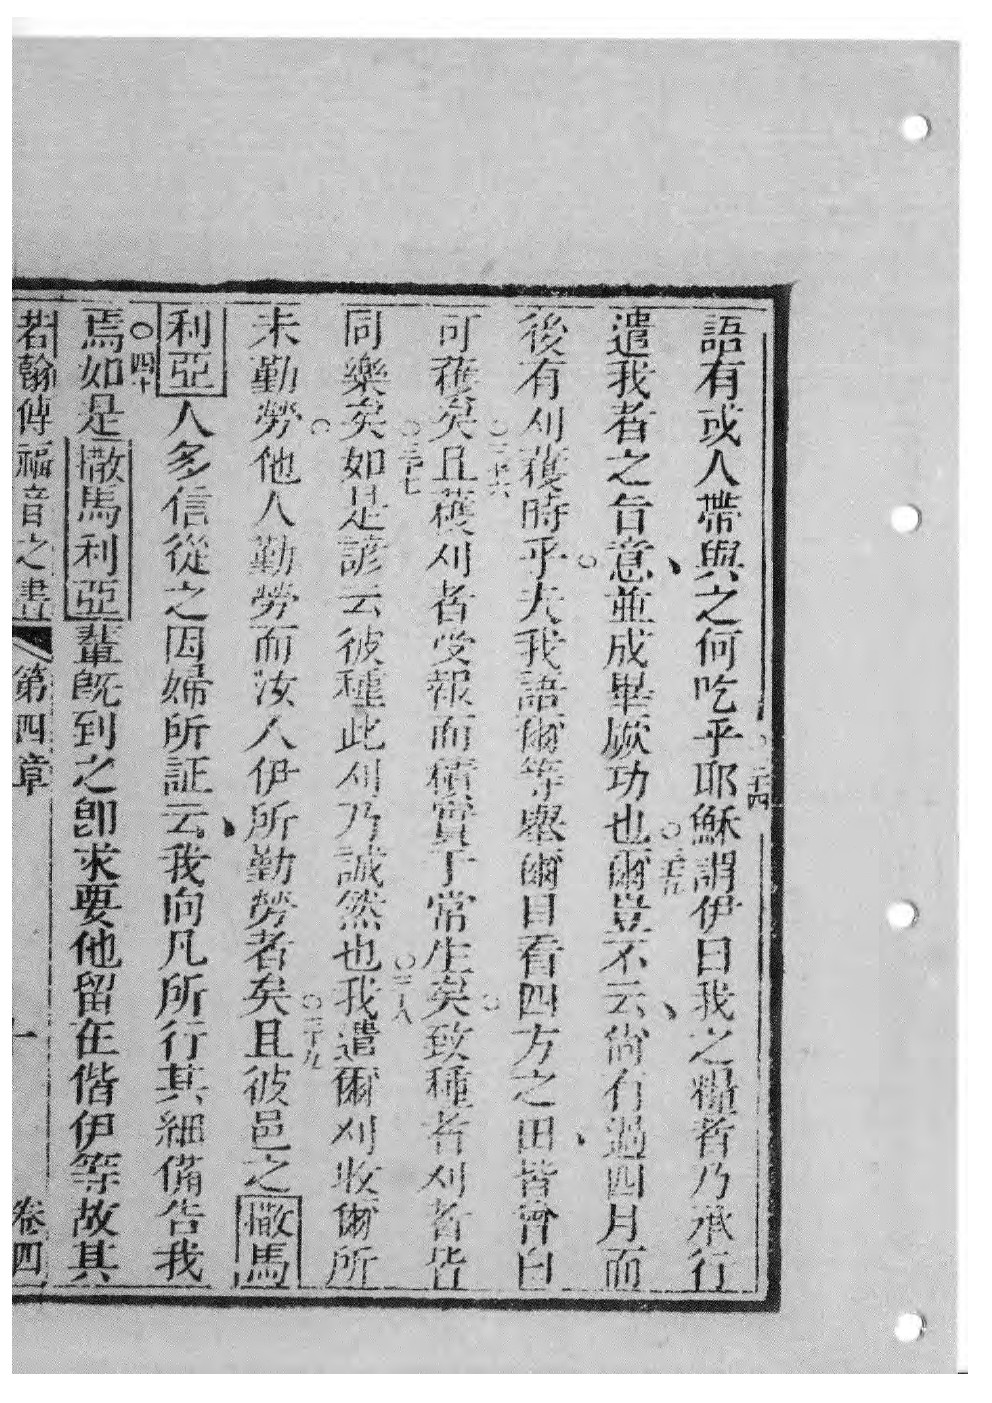 語有或人帶與之何吃乎○三十四耶穌謂伊曰我之糧者乃承行
遣我者之旨意、並成畢厥功也○三十五爾豈不云、尚有過四月而
後有刈穫時乎。夫我語爾等舉爾目看四方之田、皆會白
可穫矣○三十六且穫刈者受報而積實于常生矣。致種者刈者皆
同樂矣○三十七如是諺云彼種此刈乃誠然也○三十八我遣爾刈收爾所
未勤勞。他人勤勞而汝人伊所勤勞者矣○三十九且彼邑之撒馬
利亞人多信從之因婦所証云、我向凡所行其細備告我
焉○四十如是撒馬利亞輩既到之即求要他留在偕伊等故其
若翰傳福音之書 第四章 一 卷四